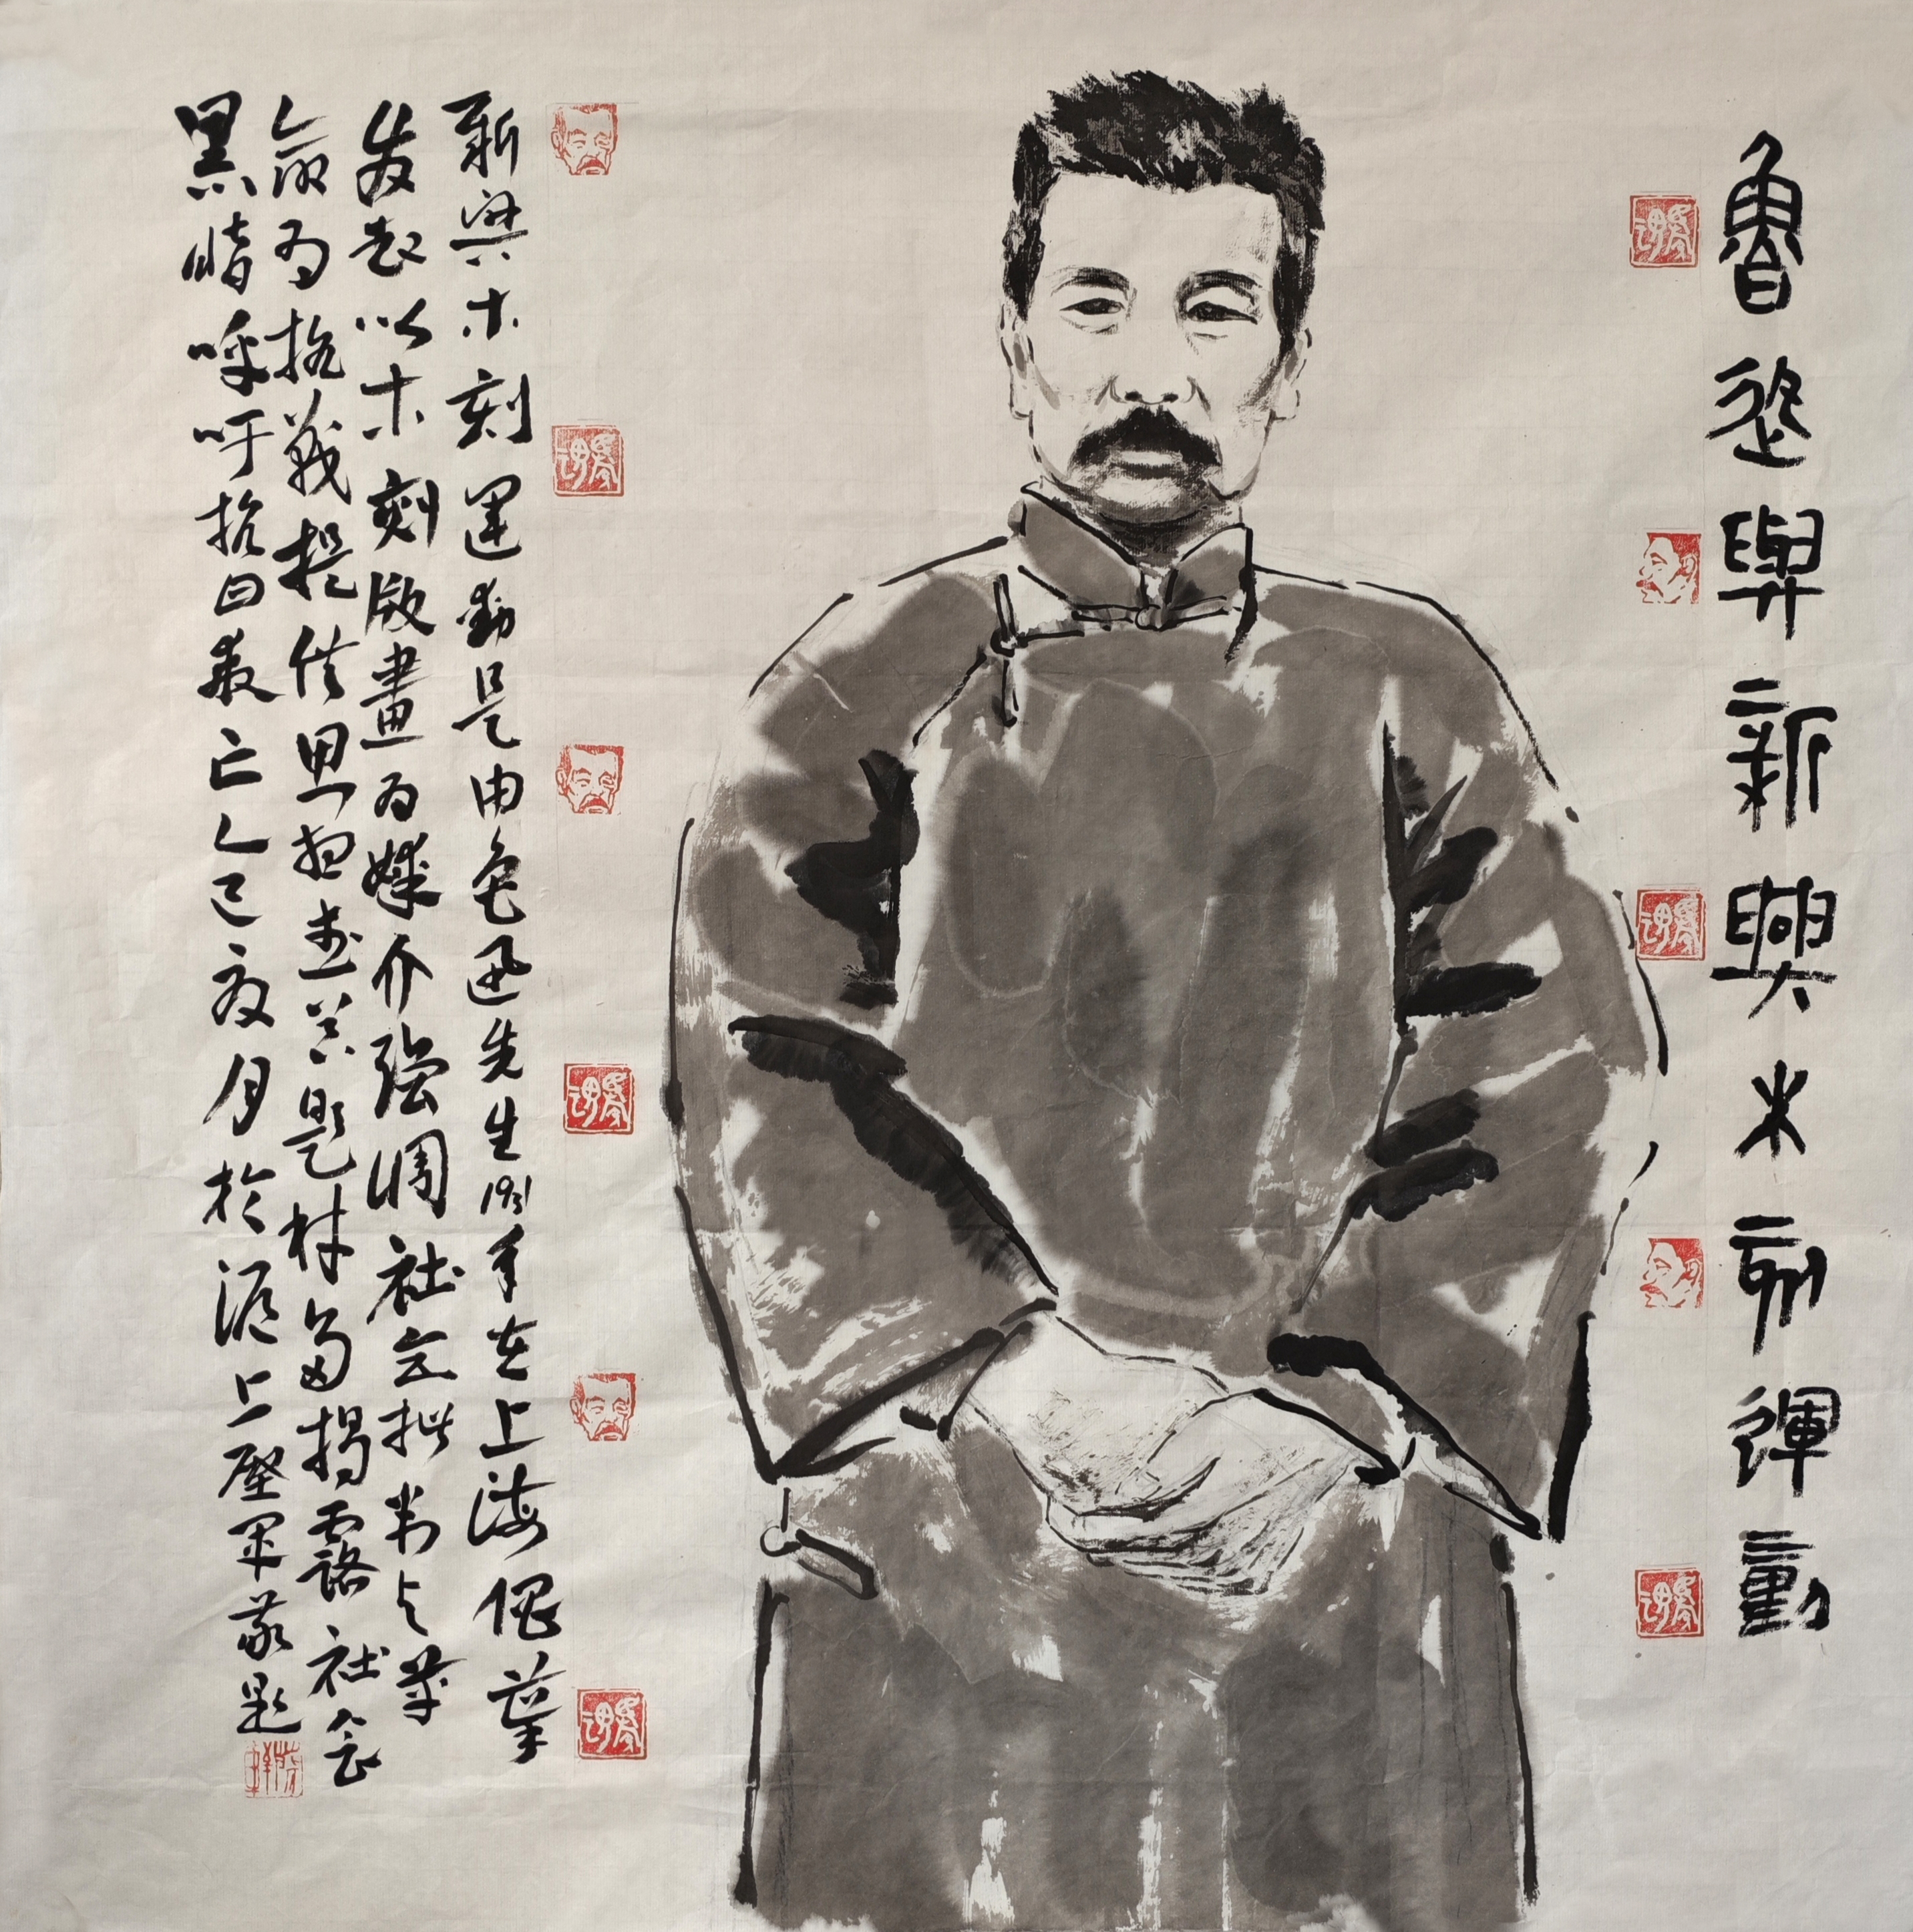 魯迅與新興木刻運動
新興木刻運動是由魯迅先生1931年在上海倡
发起以木刻版畫为媒介强调社会批判与革
命为抗戰提供思想武器題材多揭露社会
黑暗呼吁抗日救亡乙巳夏月於滬上軍敬題